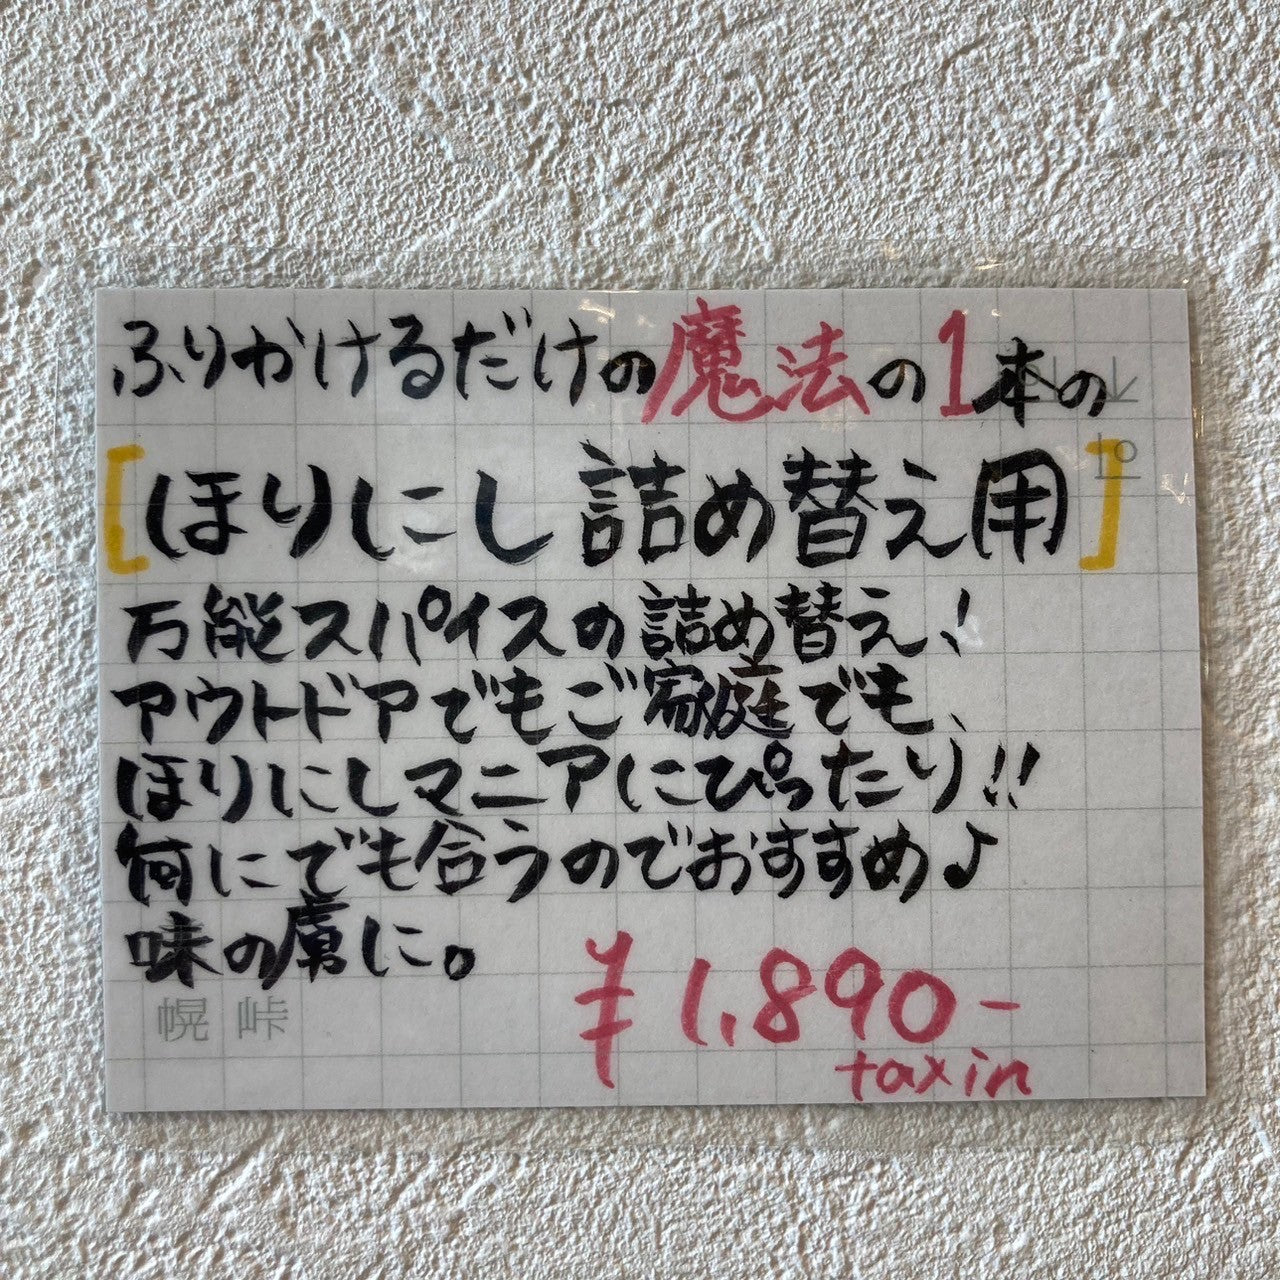 ふりかけるだけの魔法の1本の
[ほりにし 詰め替え用]
万能スパイスの詰め替え!
アウトドアでもご家庭でも、
ほりにしマニアにぴったり!!
何にでも合うのでおすすめ♪
味の虜に。
¥1,890-
tax in
幌 峠